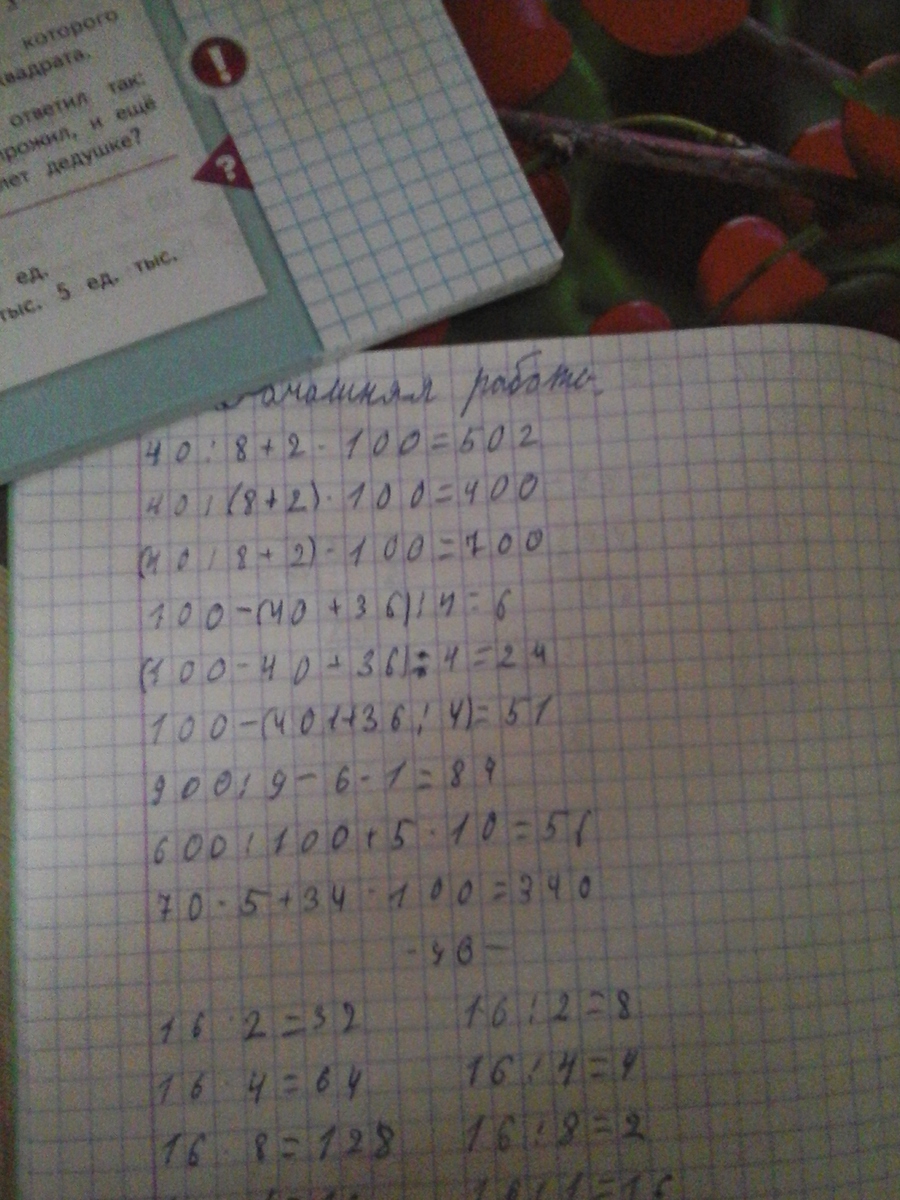 которого
квадрата.
ответил так:
прожил, и ещё
лет дедушке?
!
?
ед.
тыс. 5 ед. тыс.
Домашняя работа.
40 : 8 + 2 · 100 = 502
40 : (8 + 2) · 100 = 400
(40 : 8 + 2) · 100 = 700
100 - (40 + 36) : 4 = 6
(100 - 40 + 36) : 4 = 24
100 - (40 + 36 : 4) = 51
900 : 9 - 6 - 1 = 84
600 : 100 + 5 · 10 = 56
70 · 5 + 34 · 100 = 340
16 · 2 = 32 16 : 2 = 8
16 · 4 = 64 16 : 4 = 4
16 · 8 = 128 16 : 8 = 2
16 : 1 = 16